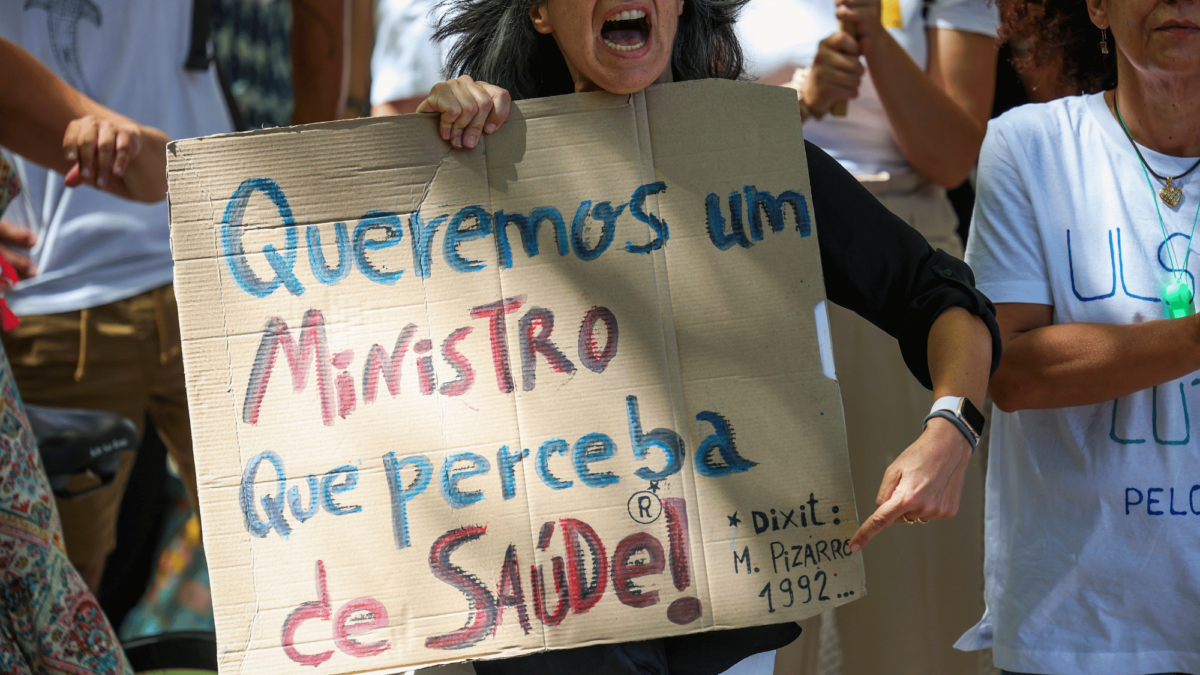 Queremos um
MiNisTRO
Que perceba
de SAÚDe!
®
* Dixit:
M. PizARRO
1992...
ULS
PELO